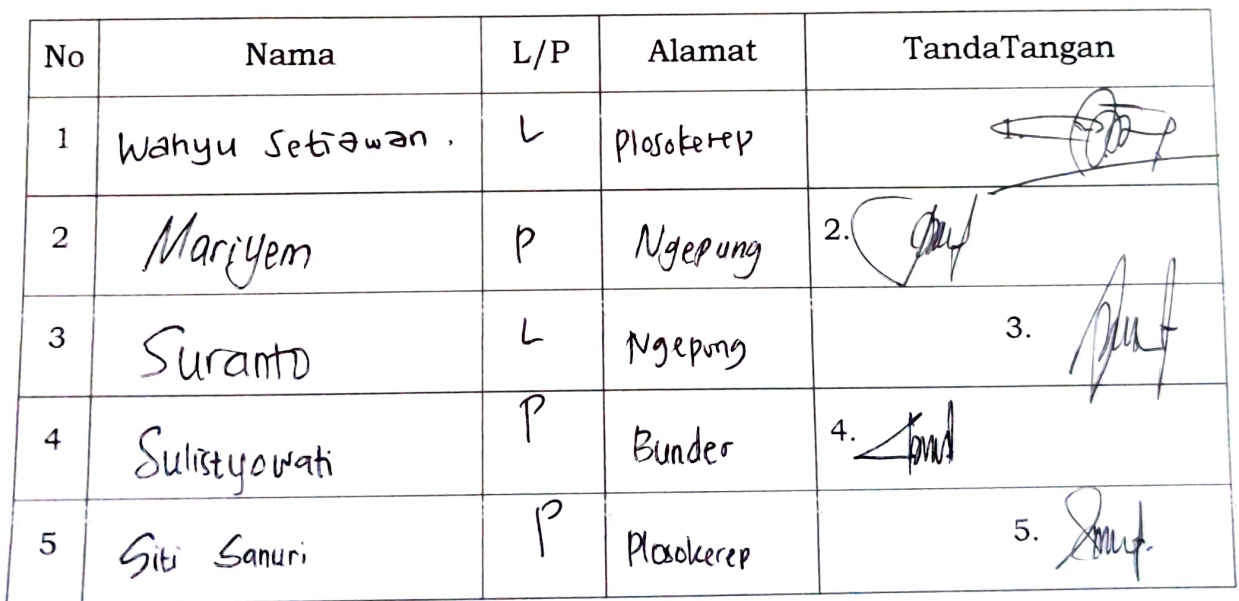 No Nama L/P Alamat TandaTangan
1 Wahyu Setiawan. L Plosokerep 1.
2 Mariyem P Ngepung 2.
3 Suranto L Ngepung 3.
4 Sulistyowati P Bunder 4.
5 Siti Sanuri P Plosokerep 5.